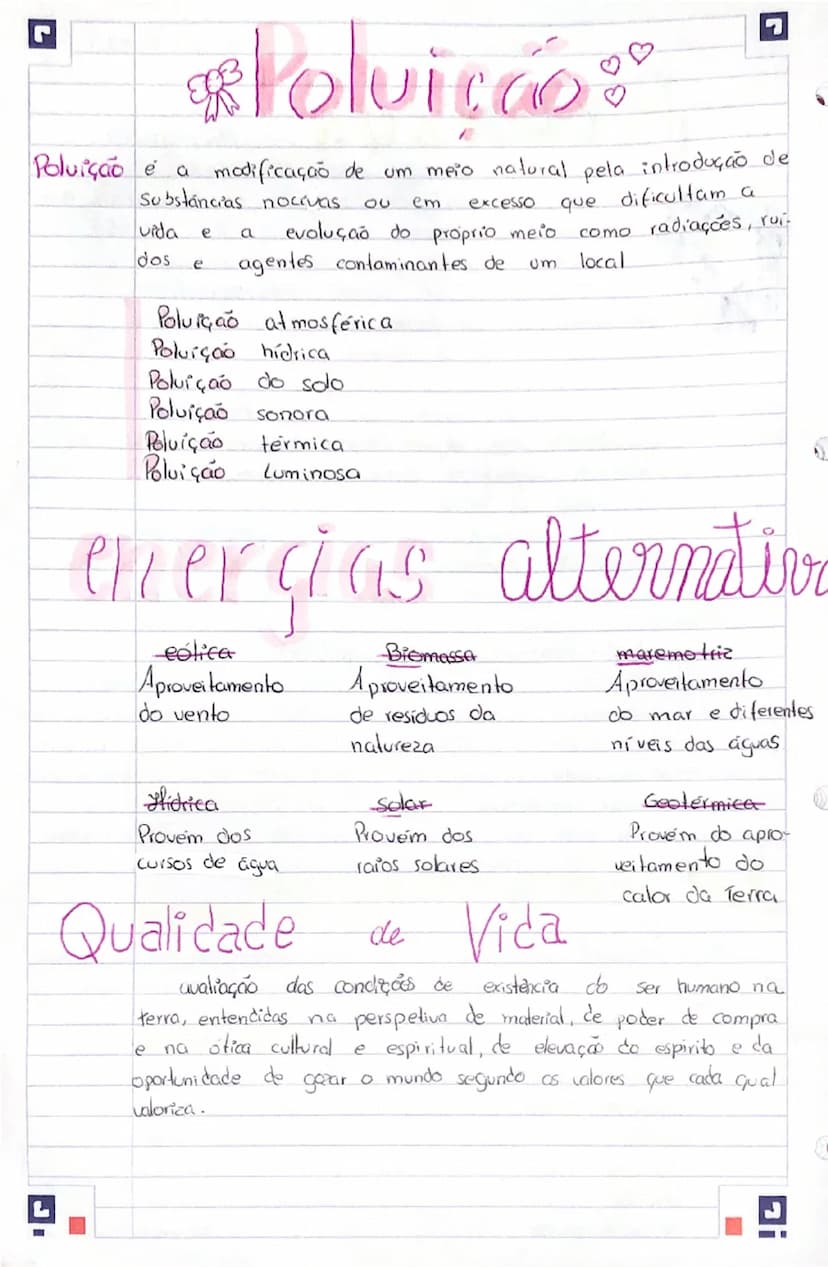 Poluição
Poluição é a modificação de um meio natural pela introdução de
substâncias nocivas ou em excesso que dificultam a
vida e a evolução do próprio meio como radiações, ruí-
dos e agentes contaminantes de um local
Poluição atmosférica
Poluição hídrica
Poluição do solo
Poluição sonora
Poluição térmica
Poluição luminosa
energias alternativa
eólica Biomassa maremotriz
Aproveitamento Aproveitamento Aproveitamento
do vento de resíduos da do mar e diferentes
natureza níveis das águas
Hídrica solar Geotérmica
Provém dos Provém dos Provém do apro-
cursos de água raios solares veitamento do
calor da Terra
Qualidade de Vida
avaliação das condições de existência do ser humano na
terra, entendidas na perspetiva de material, de poder de compra
e na ótica cultural e espiritual, de elevação do espirito e da
oportunidade de gozar o mundo segundo os valores que cada qual
valoriza.